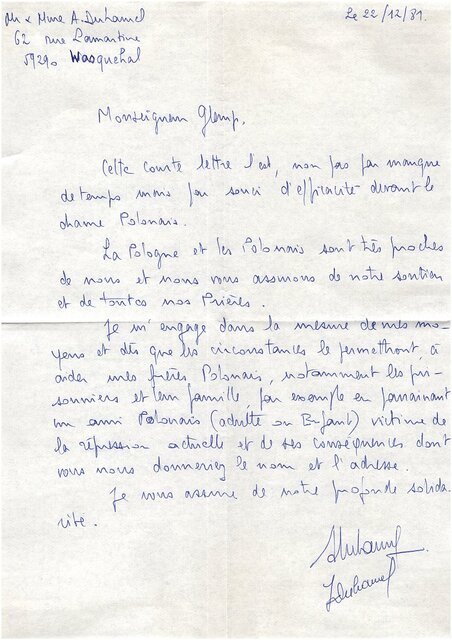 Mr & Mme A. Duhamel
62 rue Lamartine
59290 Wasquehal
Le 22/12/81.
Monseigneur Glemp,
Cette courte lettre l'est, non pas par manque
de temps mais par souci d'efficacité devant le
drame Polonais.
La Pologne et les Polonais sont très proches
de nous et nous vous assurons de notre soutien
et de toutes nos Prières.
Je m'engage dans la mesure de mes mo-
yens et dès que les circonstances le permettront, à
aider mes frères Polonais, notamment les pri-
sonniers et leur famille, par exemple en parrainant
un ami Polonais (adulte ou Enfant) victime de
la répression actuelle et de ses conséquences dont
vous nous donneriez le nom et l'adresse.
Je vous assure de notre profonde solida-
rité.
ADuhamel
Duhamel